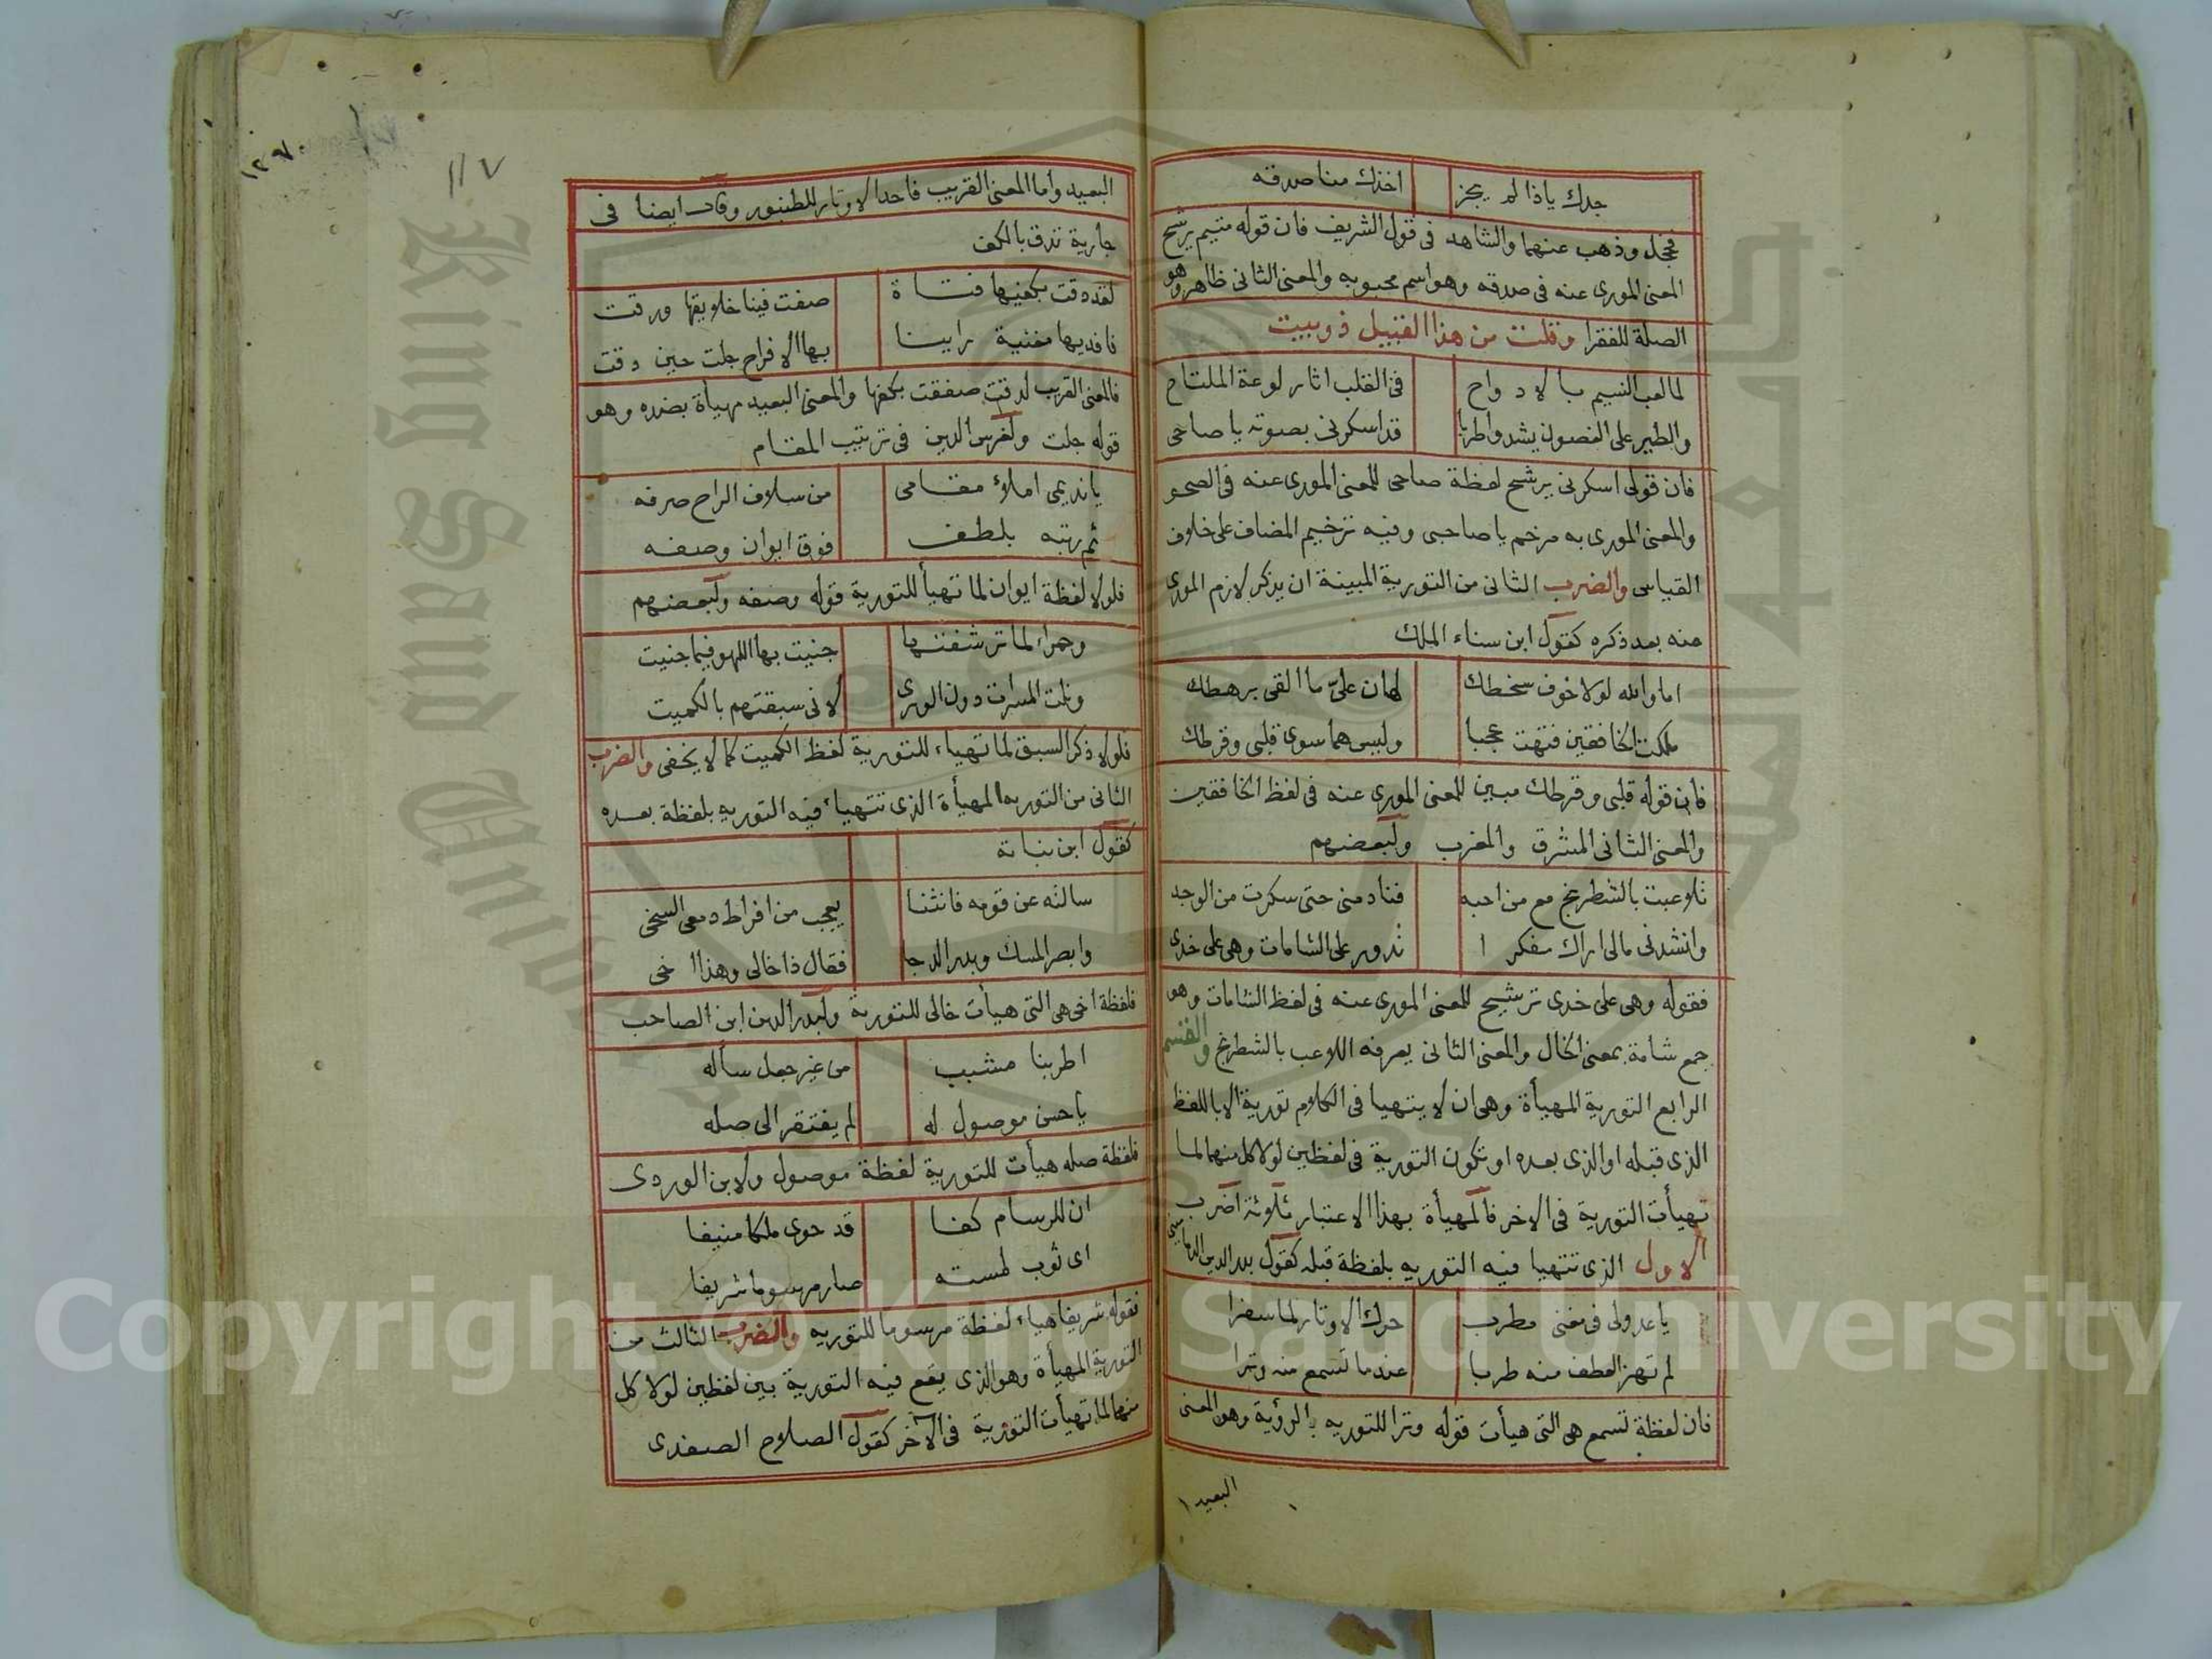 جدك ياذا لم يجز اخذك منا صدقه
فخجل وذهب عنهما والشاهد فى قول الشريف فان قوله متيم يرشح
المعنى المورى عنه فى صدقه وهو اسم محبوبه والمعنى الثانى ظاهر وهو
الصلة للفقرا وقلت من هذا القبيل ذوبيت
لما لعب النسيم بالادواح فى القلب اثار لوعة الملتاح
والطير على الغصون يشدو اطربا قد اسكرنى بصوته يا صاحى
فان قولى اسكرنى يرشح لفظة صاحى للمعنى المورى عنه فى الصحو
والمعنى المورى به مرخم يا صاحبى وفيه ترخيم المضاف على خلاف
القياس والضرب الثانى من التورية المبينة ان يذكر لازم المورى
عنه بعد ذكره كقول ابن سناء الملك
اما والله لولا خوف سخطك لهان علىّ ما القى برهطك
ملكت الخافقين فتهت عجبا وليس هما سوى قلبى وقرطك
فان قوله قلبى وقرطك مبين للمعنى المورى عنه فى لفظ الخافقين
والمعنى الثانى المشرق والمغرب ولبعضهم
تلاعبت بالشطرنج مع من احبه فنادمنى حتى سكرت من الوجد
وانشدنى مالى اراك مفكرا تدور على الشامات وهى على خدى
فقوله وهى على خدى ترشيح للمعنى المورى عنه فى لفظ الشامات وهو
جمع شامة بمعنى الخال والمعنى الثانى يعرفه اللاعب بالشطرنج والقسم
الرابع التورية المهيأة وهى ان لا يتهيا فى الكلام تورية الا باللفظ
الذى قبله او الذى بعده او تكون التورية فى لفظين لولا كل منهما لما
تهيأت التورية فى الاخر فالمهيأة بهذا الاعتبار ثلاثة اضرب
الاول الذى تتهيا فيه التوريه بلفظة قبله كقول بدر الدين الدمامينى
يا عذولى فى مغنى مطرب حرك الاوتار لما سفرا
لم تهز العطف منه طربا عندما تسمع منه وترا
فان لفظة تسمع هى التى هيأت قوله وترا للتوريه بالرؤية وهو المعنى
البعيد
١١٧
١٢٩٠
البعيد واما المعنى القريب فاحد الاوتار للطنبور وقال ايضا فى
جارية تدق بالكف
لقد دقت بكفيها فتاة صفت فينا خلايقها ورقت
فافديها مغنية راينا بها الافراح جلت حين دقت
فالمعنى القريب لدقت صفقت بكفها والمعنى البعيد مهيأة بضده وهو
قوله جلت ولغرس الدين فى ترتيب المقام
يا نديمى املأ مقامى من سلاف الراح صرفه
ثم رتبه بلطف فوق ايوان وصفه
فلولا لفظة ايوان لما تهيأ للتورية قوله وصفه ولبعضهم
وحمراء لما ترشفتها جنيت بها اللهو فيما جنيت
ونلت المسرات دون الورى لانى سبقتهم بالكميت
فلولا ذكر السبق لما تهياء للتورية لفظ الكميت كما لا يخفى والضرب
الثانى من التوريه المهيأة الذى تتهياء فيه التوريه بلفظة بعده
كقول ابن نباته
سالته عن قومه فانثنا يعجب من افراط دمعى السخى
وابصر المسك وبدر الدجا فقال ذا خالى وهذا اخى
فلفظة اخى هى التى هيأت خالى للتورية ولبدر الدين ابن الصاحب
اطربنا مشبب من غير جعل ساله
يا حسن موصول له لم يفتقر الى صله
فلفظة صله هيأت للتورية لفظة موصول ولابن الوردى
ان للرسام كفا قد حوى ملكا منيفا
اى ثوب لمسته صار مرسوما شريفا
فقوله شريفا هياء لفظة مرسوما للتوريه والضرب الثالث من
التورية المهيأة وهو الذى يقع فيه التورية بين لفظين لولا كل
منهما لما تهيأت التورية فى الآخر كقول الصلاح الصفدى
King Saud University
Copyright © King Saud University